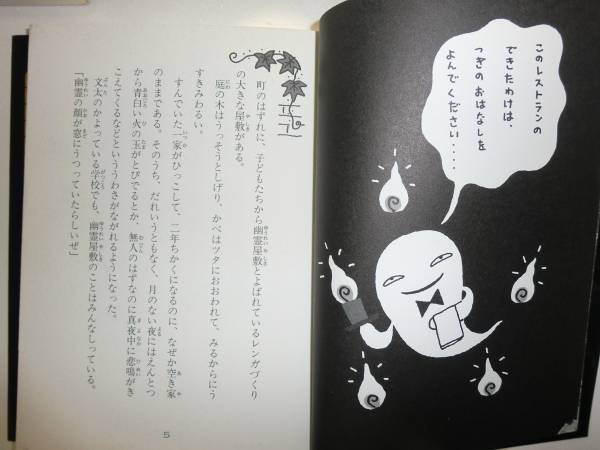 このレストランの
できたわけは、
つぎのおはなしを
よんでください・・・・
町のはずれに、子どもたちから幽霊屋敷とよばれているレンガづくり
の大きな屋敷がある。
庭の木はうっそうとしげり、かべはツタにおおわれて、みるからにう
すきみわるい。
すんでいた一家がひっこして、二年ちかくになるのに、なぜか空き家
のままである。そのうち、だれいうともなく、月のない夜にはえんとつ
から青白い火の玉がとびでるとか、無人のはずなのに真夜中に悲鳴がき
こえてくるなどといううわさがながれるようになった。
文太のかよっている学校でも、幽霊屋敷のことはみんなしっている。
「幽霊の顔が窓にうつっていたらしいぜ」
5